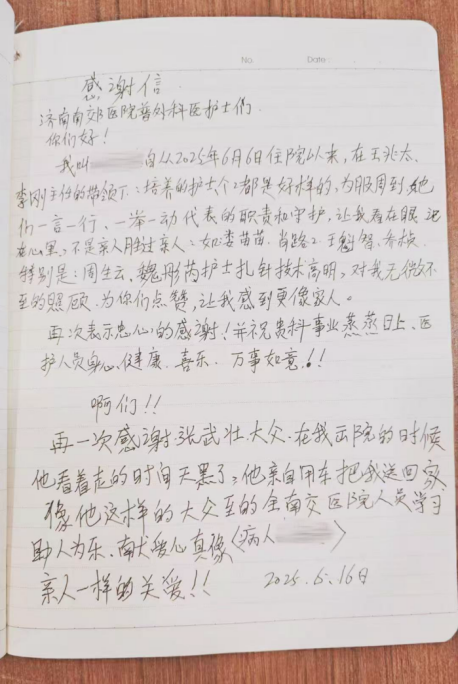 No.
Date:
感谢信
济南南郊医院普外科医护士们.
你们好！
我叫 自从2025年6月6日住院以来，在王兆太.
李刚主任的带领下:培养的护士个个都是好样的,为服周到.她
们一言一行、一举一动代表的职责和守护,让我看在眼 记
在心里,不是亲人胜过亲人:如娄苗苗.
特别是:周生云,魏彤芮护士扎针技术高明,对我无微不
至的照顾.为你们点赞,让我感到更像家人。
再次表示忠心的感谢!并祝贵科事业蒸蒸日上、医
护人员身心、健康、喜乐.万事如意!!
啊们!!
再一次感谢:张武壮.大众.在我出院的时候
他看着走的时间天黑了,他亲自用车把我送回家
像他这样的大众至的全南交医院人员学习
助人为乐、爱心真像(病人 )
亲人一样的关爱!!
2025.6.16日